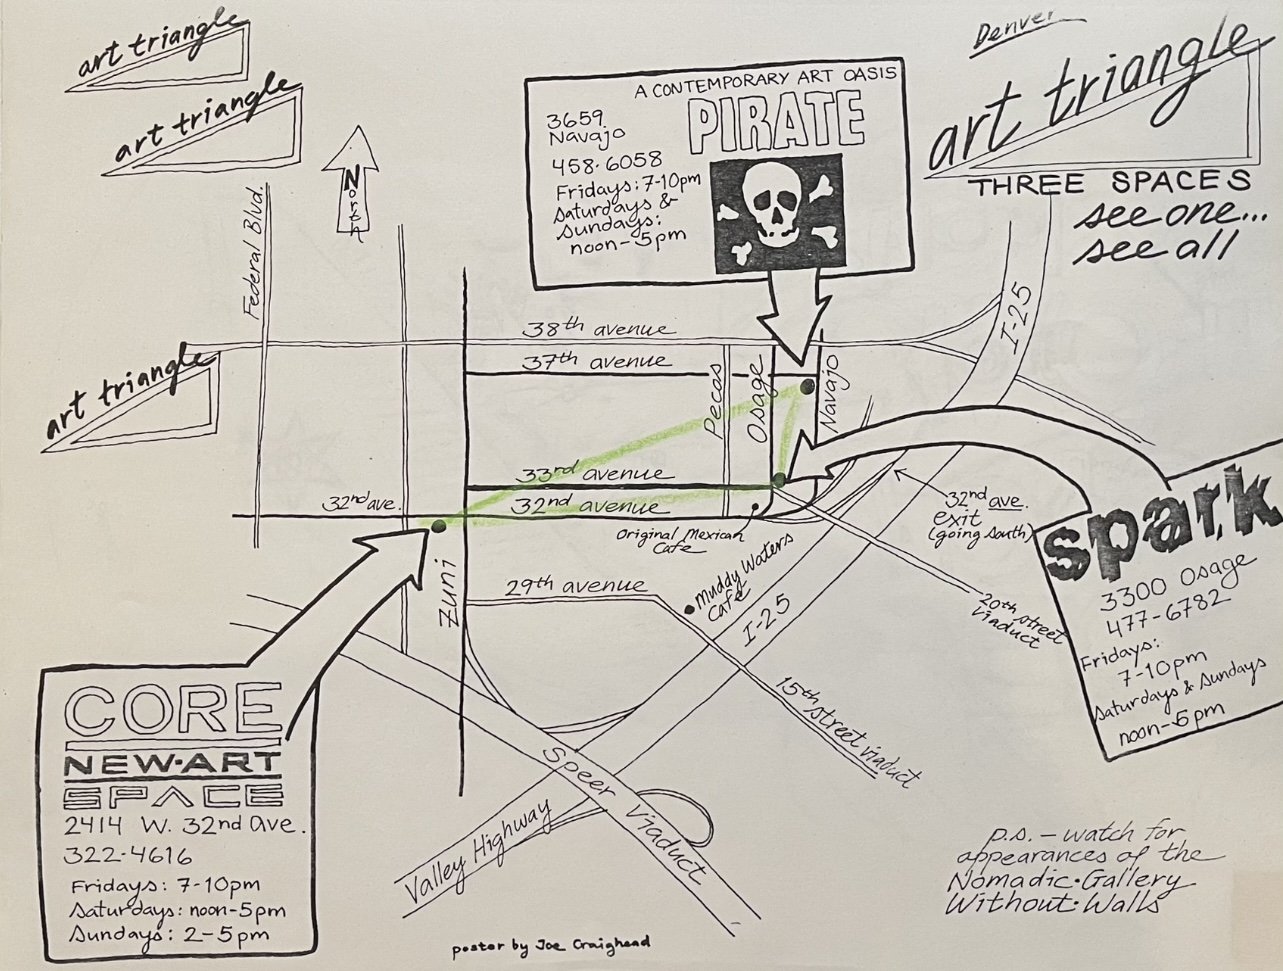 art triangle
art triangle
art triangle
North
Federal Blvd.
A CONTEMPORARY ART OASIS
PIRATE
3659
Navajo
458-6058
Fridays: 7-10pm
Saturdays &
Sundays:
noon-5pm
Denver
art triangle
THREE SPACES
see one...
see all
I-25
38th avenue
37th avenue
Pecos
Osage
Navajo
33rd avenue
32nd ave.
32nd avenue
Original Mexican
Cafe
32nd ave.
exit
(going south)
Muddy Waters
Cafe
Zuni
29th avenue
I-25
20th street
viaduct
15th street viaduct
Speer Viaduct
Valley Highway
spark
3300 Osage
477-6782
Fridays:
7-10pm
Saturdays & Sundays
noon-5pm
CORE
NEW·ART
SPACE
2414 W. 32nd Ave.
322-4616
Fridays: 7-10pm
Saturdays: noon-5pm
Sundays: 2-5pm
p.s. - watch for
appearances of the
Nomadic·Gallery
Without·Walls
poster by Joe Craighead